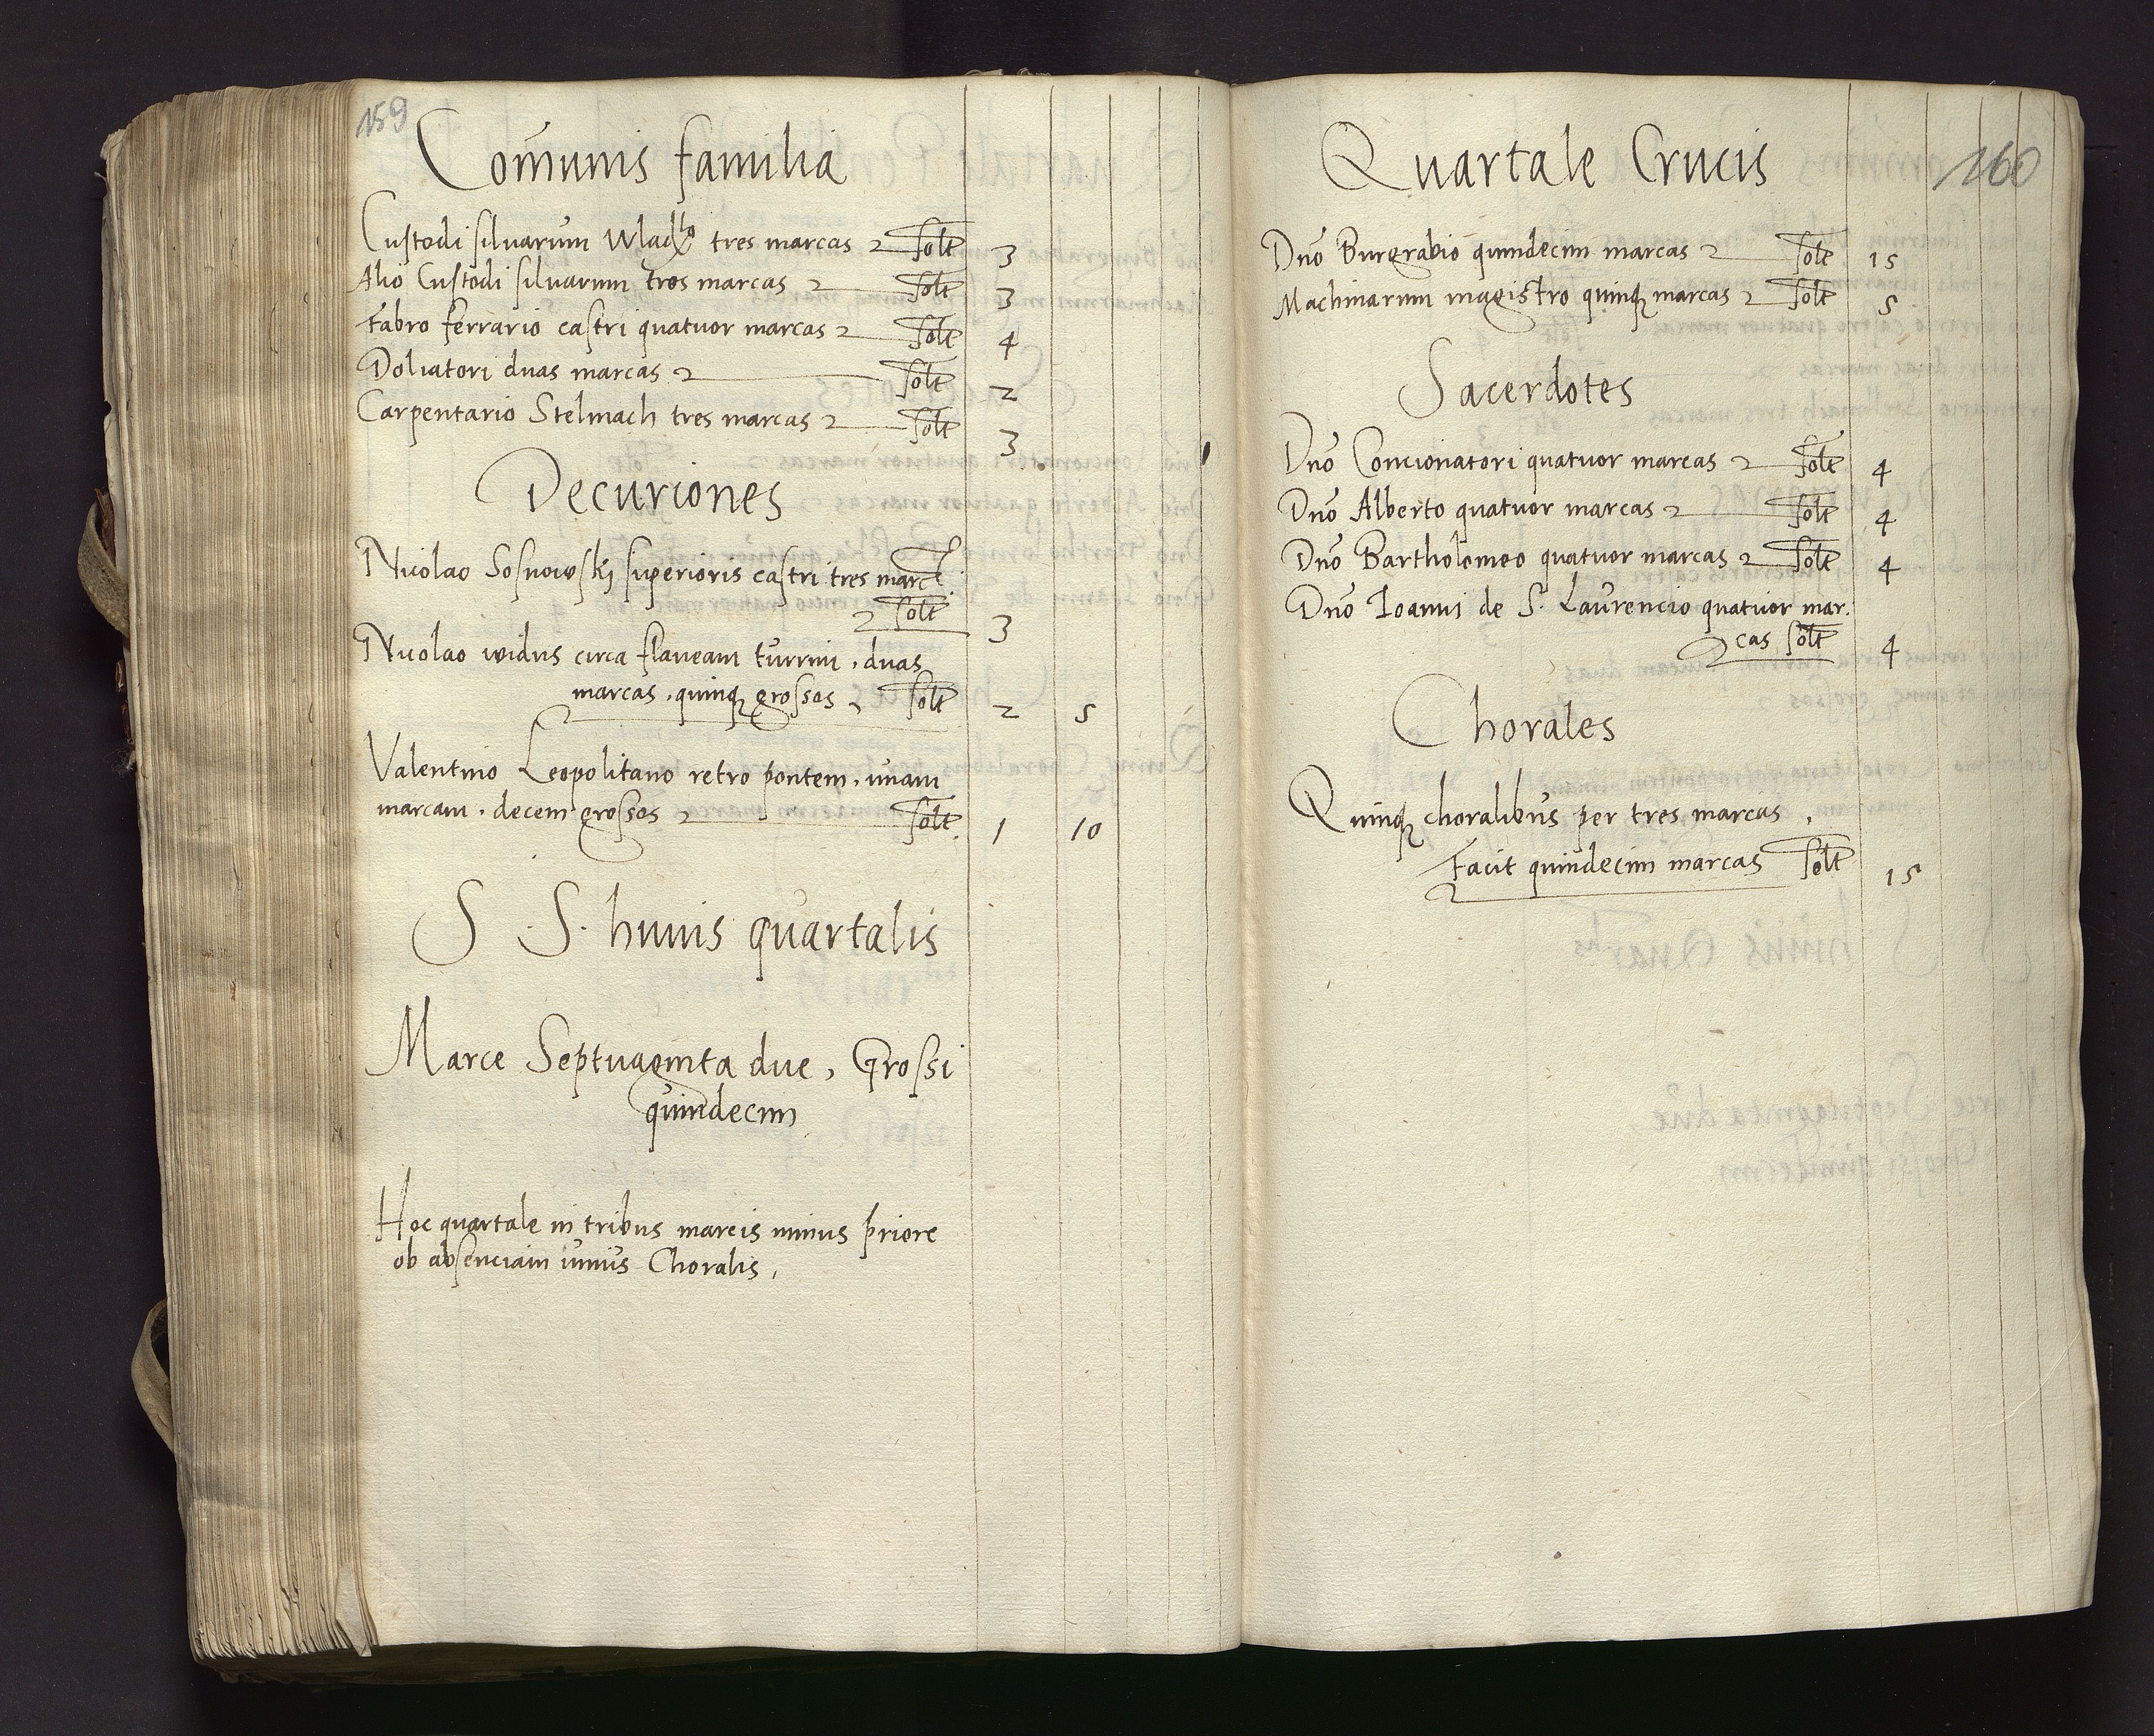 159
Com̄unis familia
Custodi silvarum Wladᵇᵒ tres marcas solt 3
Alio Custodi silvarum tres marcas solt 3
Fabro ferrario castri quatuor marcas solt 4
Doliatori duas marcas solt 2
Carpentario Stelmach tres marcas solt 3
Decuriones
Nicolao Sosnowskj superioris castri tres marc.
solt 3
Nicolao widus circa flaveam turrim, duas
marcas, quinq grossos, solt 2 5
Valentino Leopolitano retro pontem, unam
marcam, decem grossos solt 1 10
S S. huius quartalis
Marce Septuaginta due, Grossi
quindecim
Hoc quartale in tribus marcis minus priore
ob absenciam unius Choralis,
160
Quartale Crucis
Dno Burgrabio quindecim marcas solt 15
Machinarum magistro quinq marcas solt 5
Sacerdotes
Dno Concionatori quatuor marcas solt 4
Dno Alberto quatuor marcas solt 4
Dno Bartholomeo quatuor marcas solt 4
Dno Joanni de S. Laurencio quatuor mar.
cas solt 4
Chorales
Quinq choralibus per tres marcas,
Facit quindecim marcas solt 15